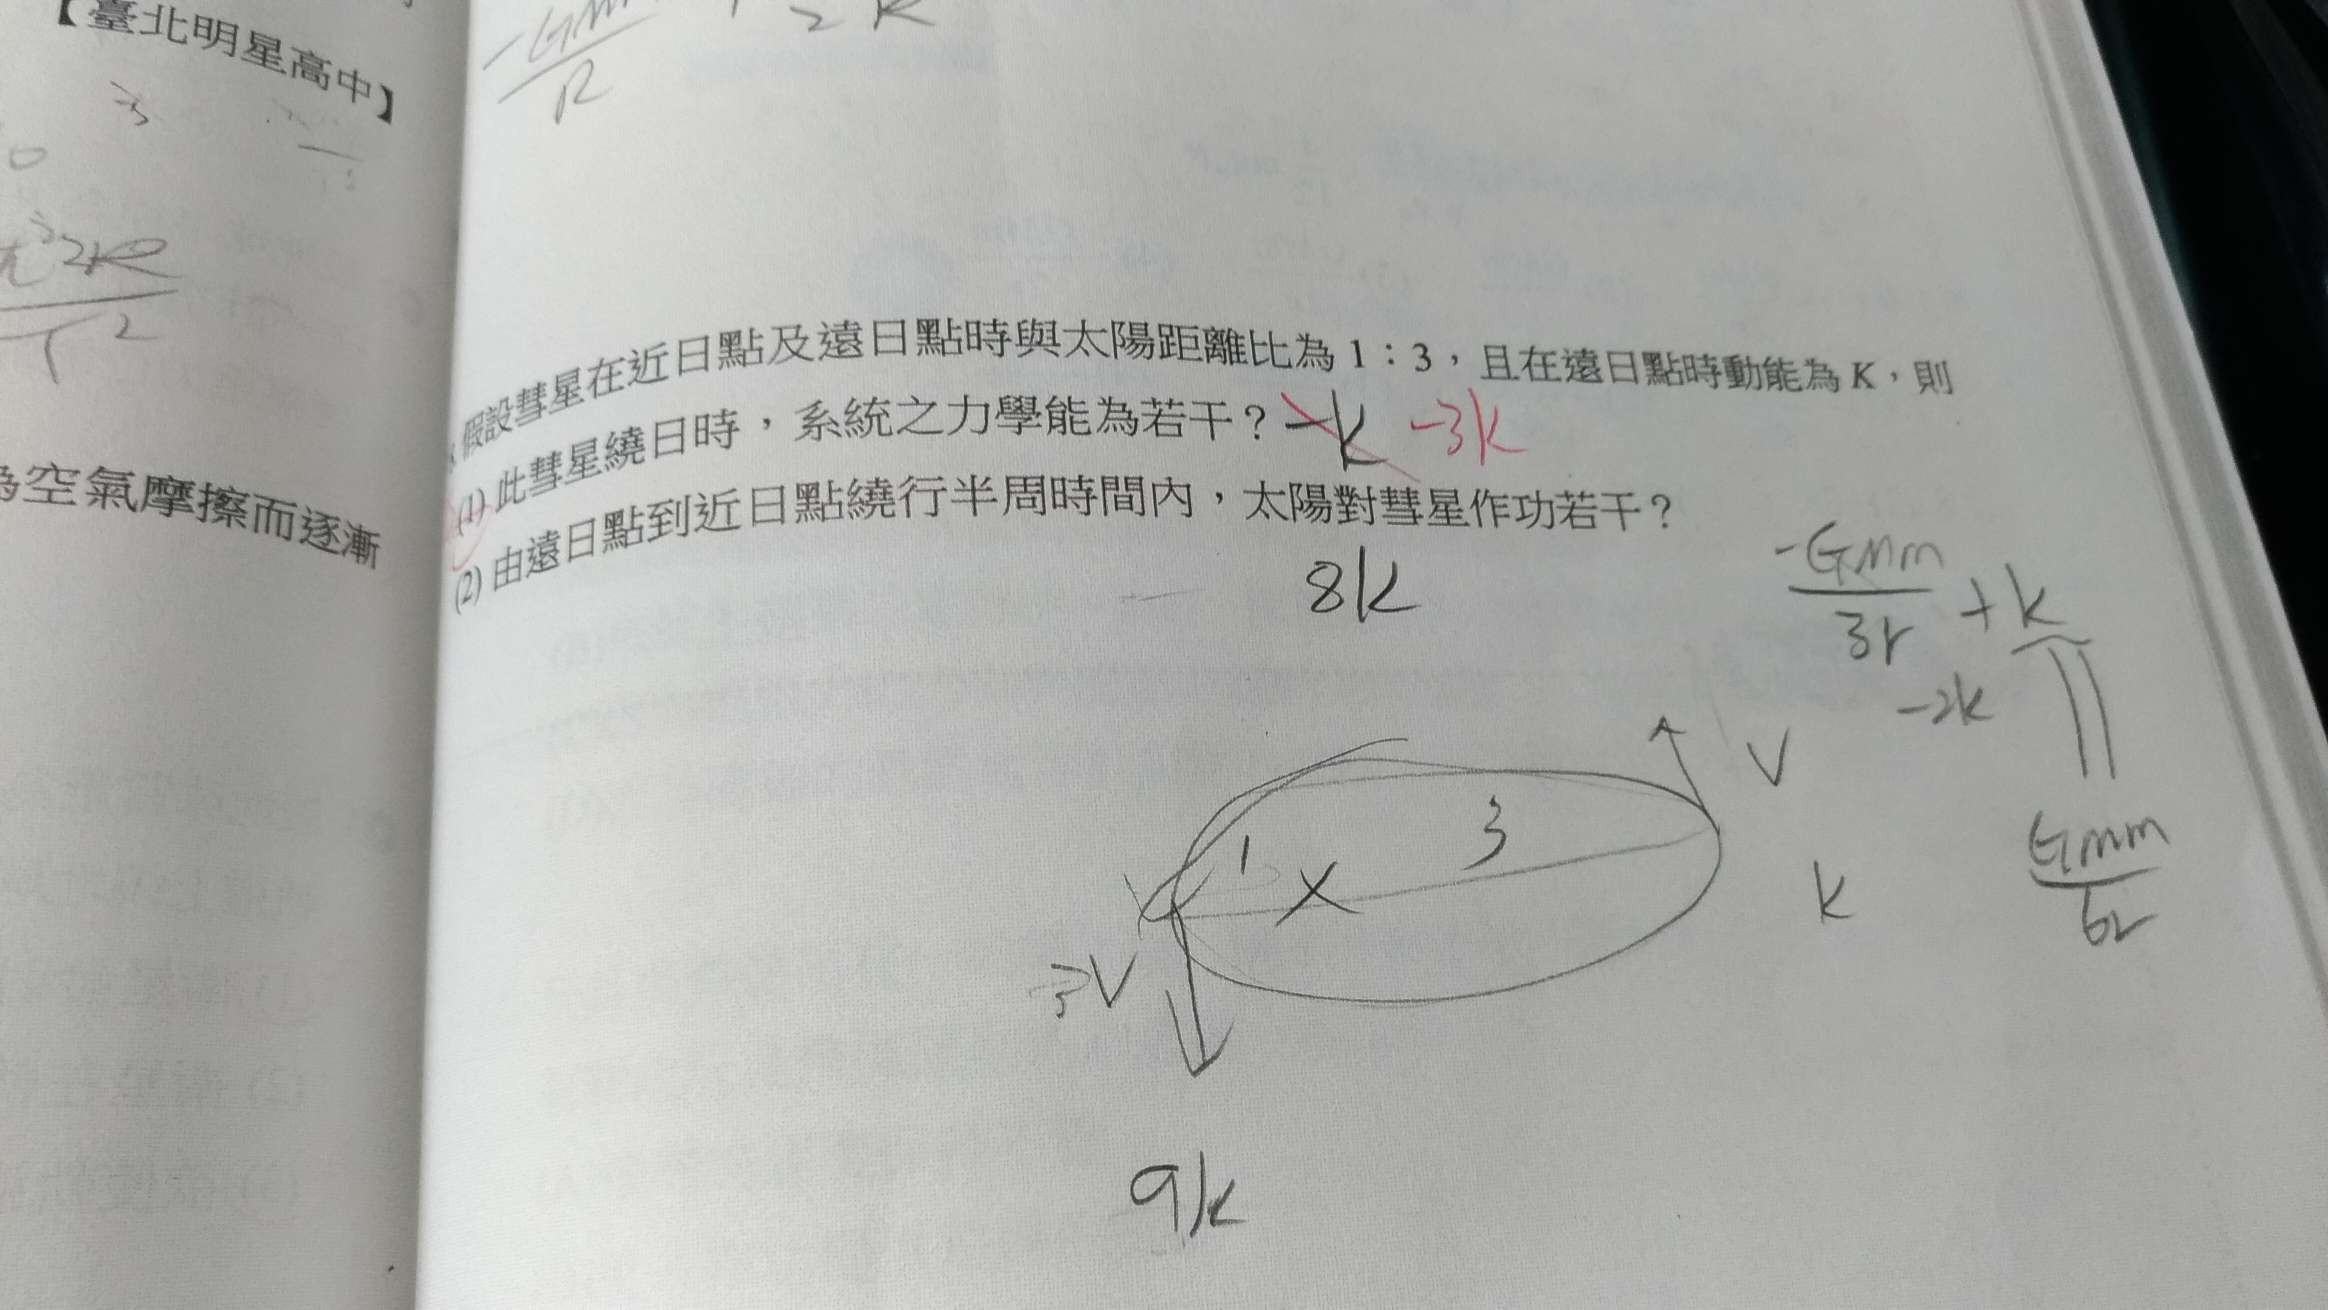 【臺北明星高中】
-GMm
R
2 K
T²
為空氣摩擦而逐漸
假設彗星在近日點及遠日點時與太陽距離比為 1：3，且在遠日點時動能為 K，則
(1) 此彗星繞日時，系統之力學能為若干？ -K -3K
(2) 由遠日點到近日點繞行半周時間內，太陽對彗星作功若干？
8K
-GMm
3r
+K
-2K
V
1
3
K
GMm
6r
3V
9K